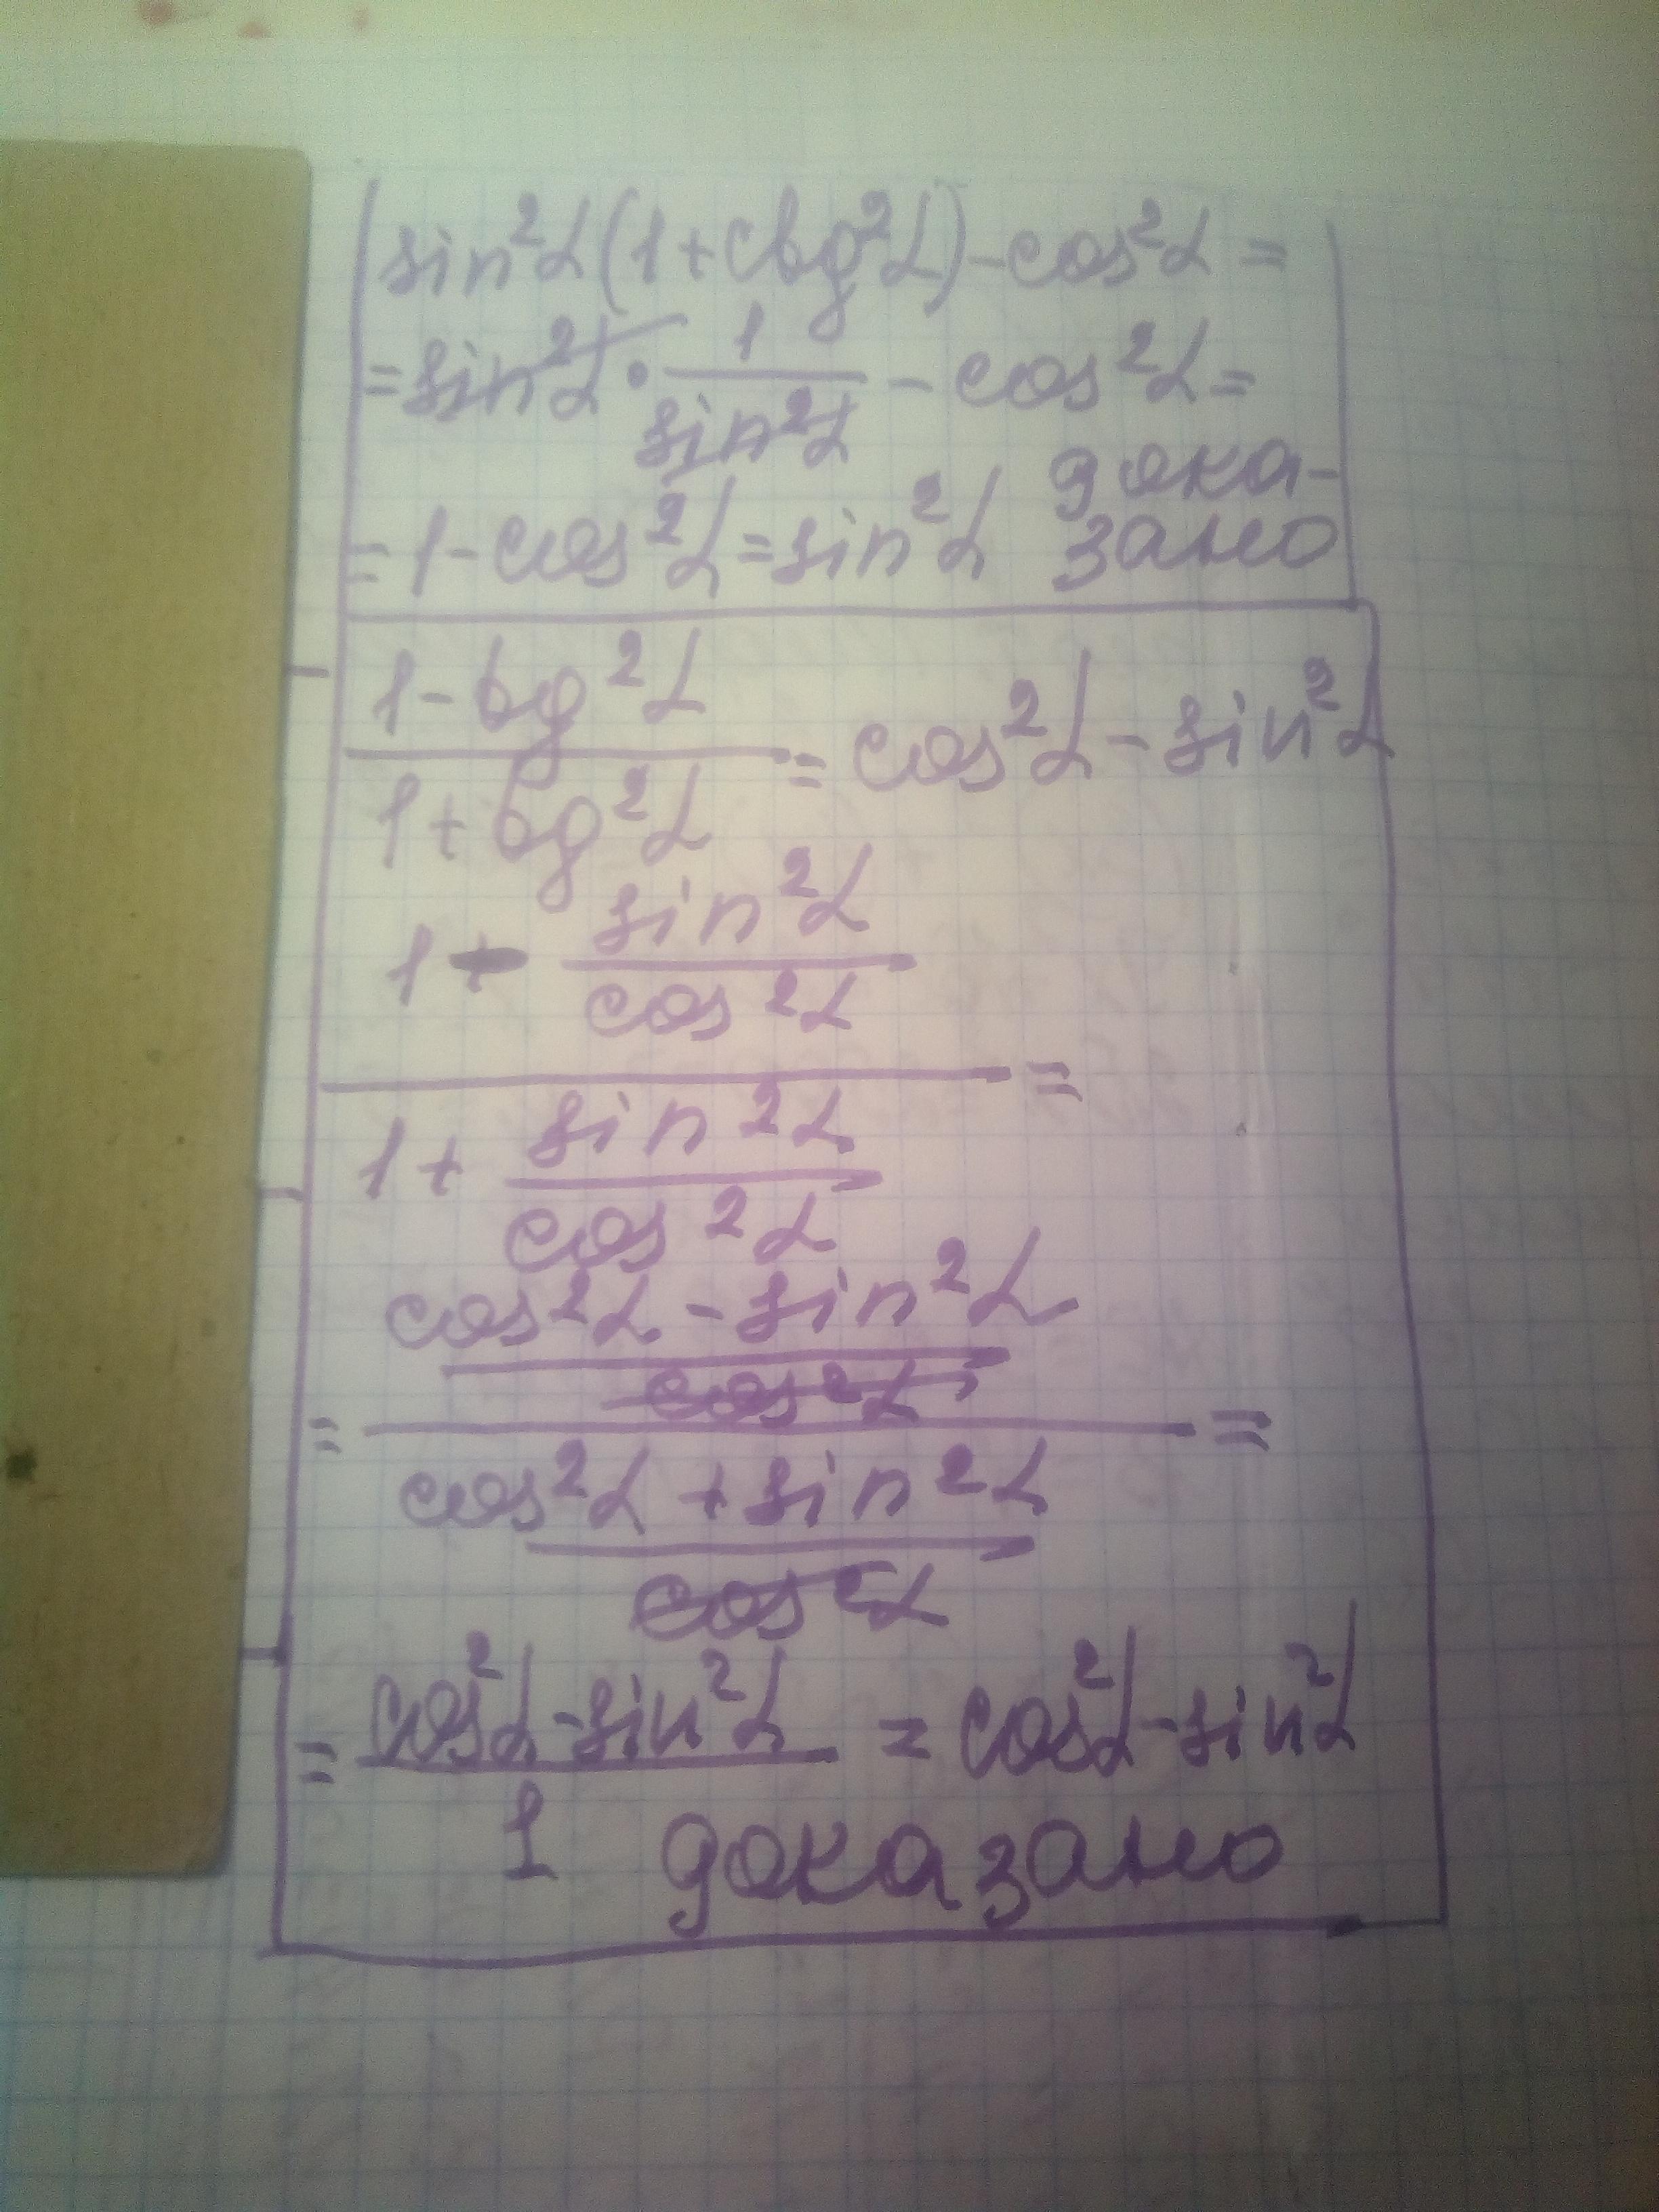 sin²α(1+ctg²α)-cos²α=
=sin²α·1/sin²α-cos²α=
=1-cos²α=sin²α дока-
зано
1-tg²α/1+tg²α=cos²α-sin²α
1-sin²α/cos²α
1+sin²α/cos²α=
=cos²α-sin²α/cos²α
cos²α+sin²α/cos²α=
=cos²α-sin²α/1=cos²α-sin²α
доказано